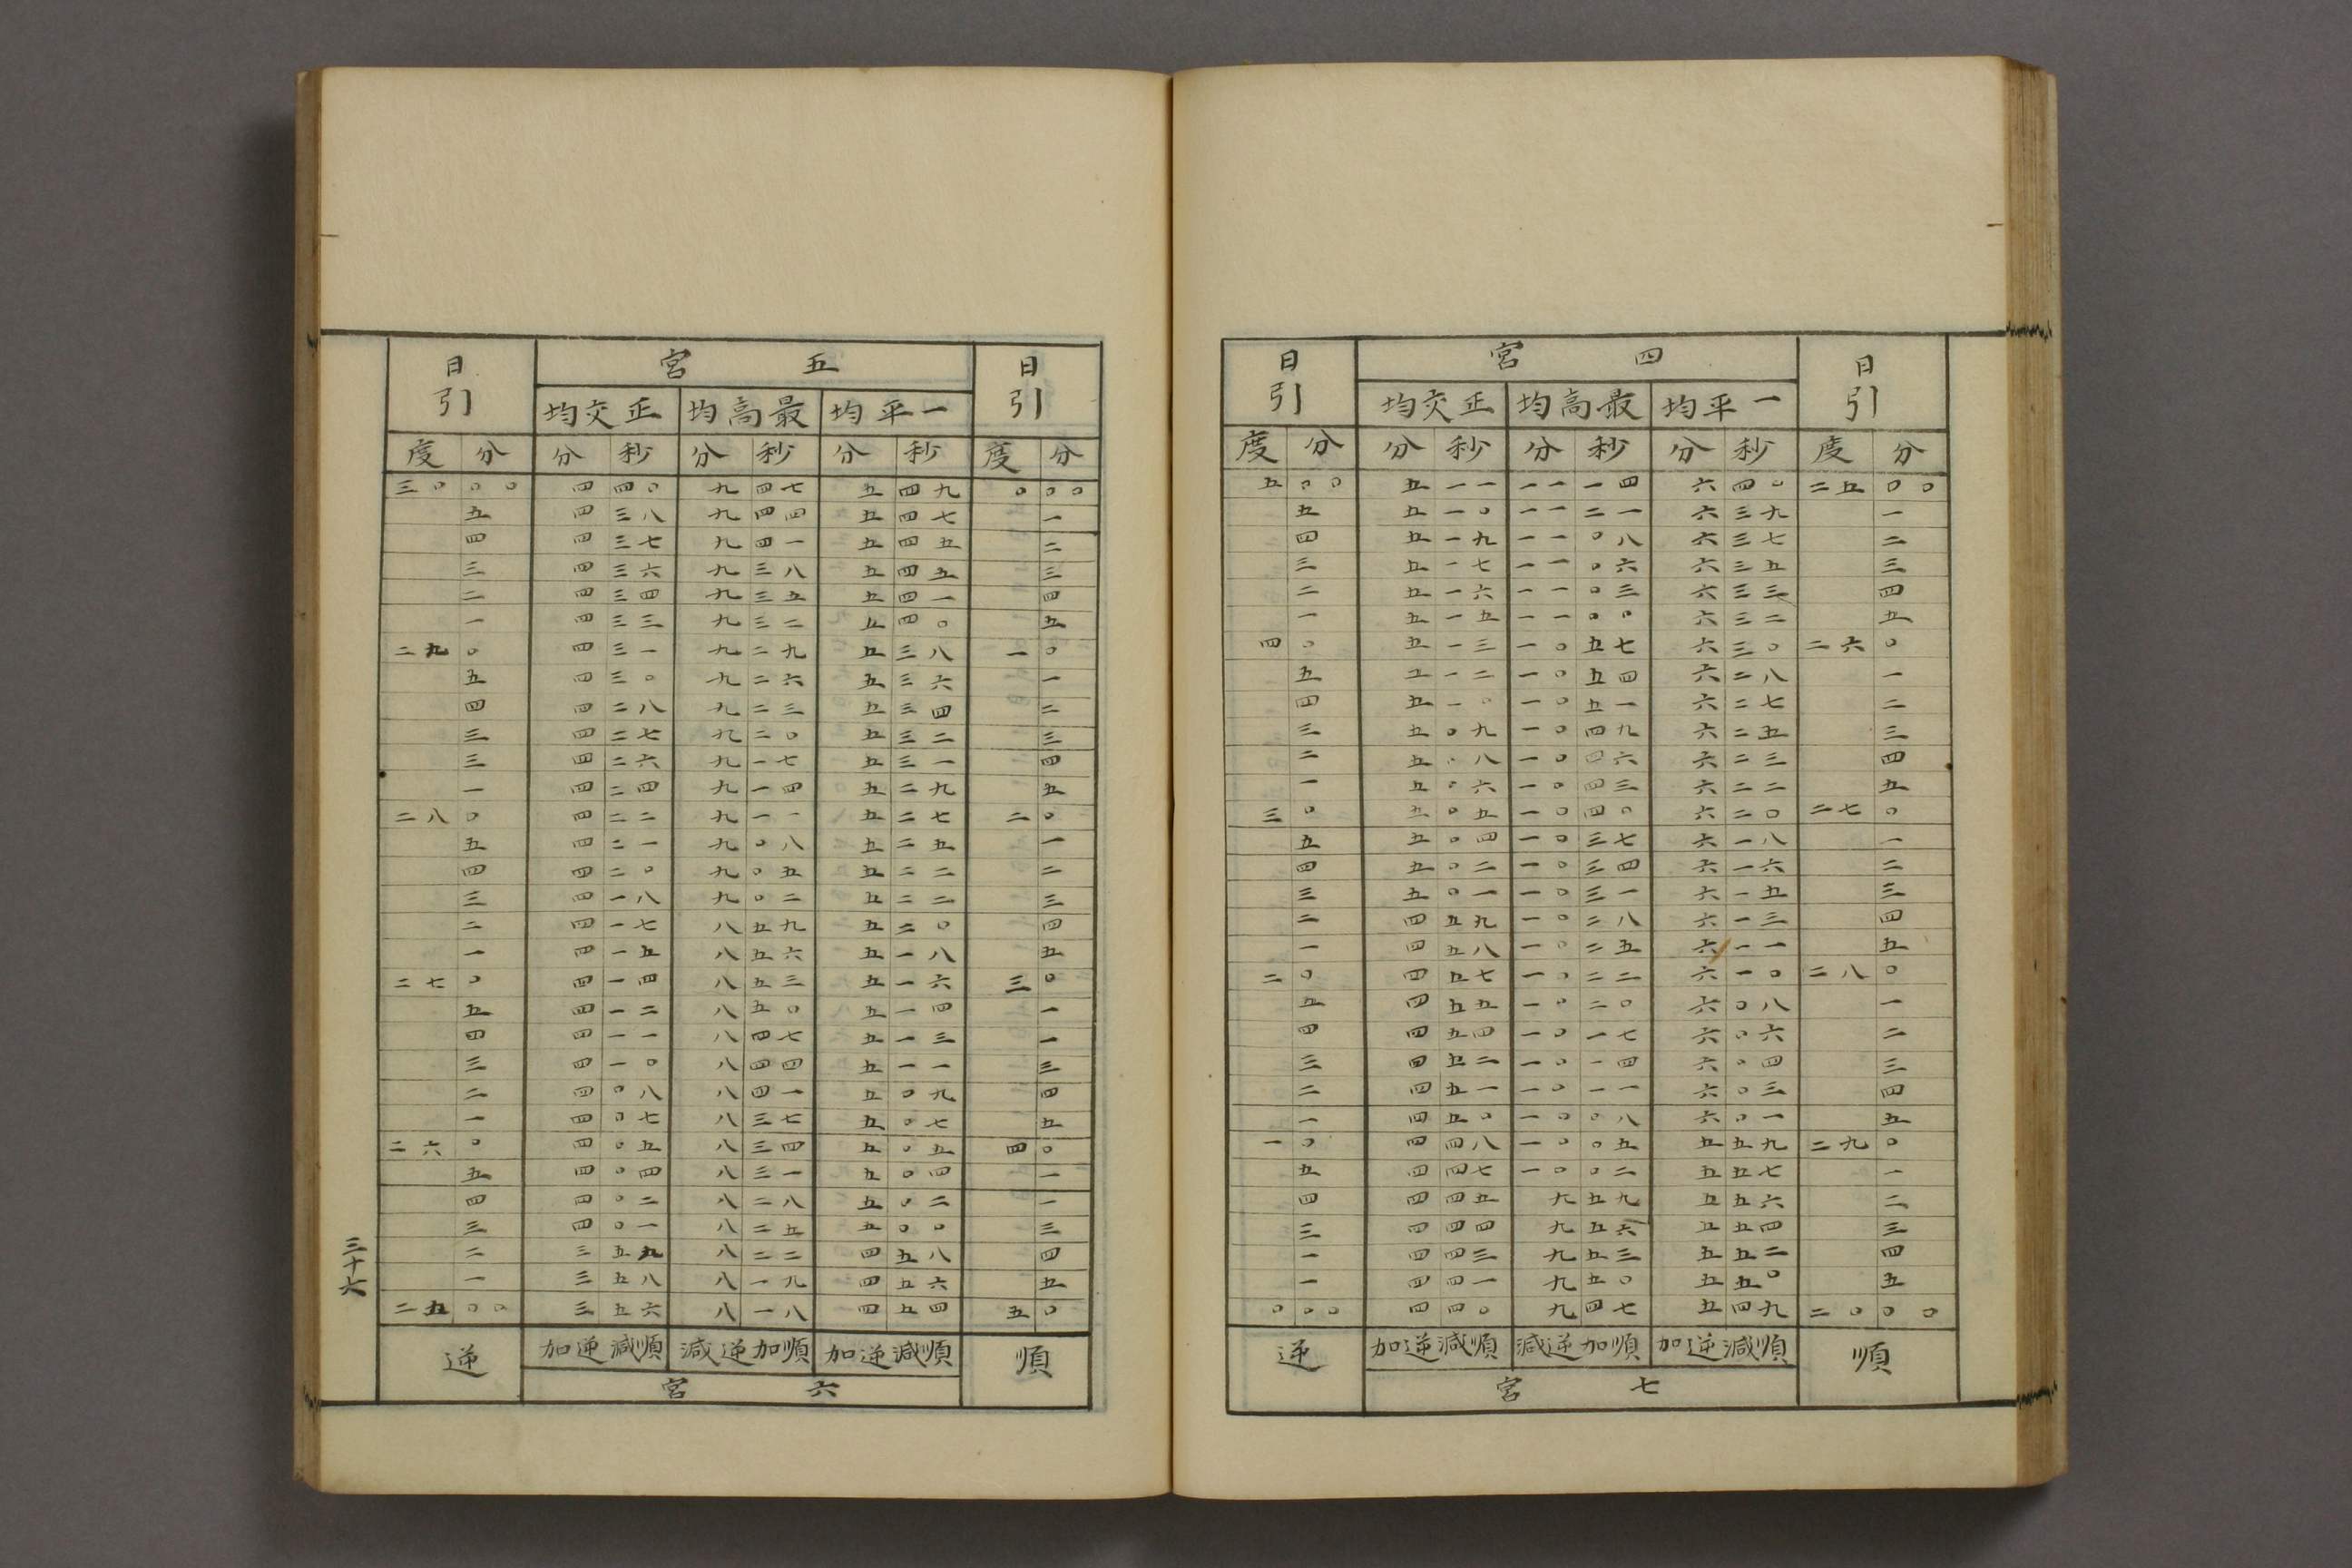 日引 四宮 日引
一平均 最高均 正交均
度 分 分 秒 分 秒 分 秒 度 分
五 〇〇 五 一一 一一 一四 六 四〇 二五 〇〇
五 五 一〇 一一 二一 六 三九 一
四 五 一九 一一 〇八 六 三七 二
三 五 一七 一一 〇六 六 三五 三
二 五 一六 一一 〇三 六 三三 四
一 五 一五 一一 〇〇 六 三二 五
四 〇 五 一三 一〇 五七 六 三〇 二六 〇
五 五 一二 一〇 五四 六 二八 一
四 五 一〇 一〇 五一 六 二七 二
三 五 〇九 一〇 四九 六 二五 三
二 五 〇八 一〇 四六 六 二三 四
一 五 〇六 一〇 四三 六 二二 五
三 〇 五 〇五 一〇 四〇 六 二〇 二七 〇
五 五 〇四 一〇 三七 六 一八 一
四 五 〇二 一〇 三四 六 一六 二
三 五 〇一 一〇 三一 六 一五 三
二 四 五九 一〇 二八 六 一三 四
一 四 五八 一〇 二五 六 一一 五
二 〇 四 五七 一〇 二二 六 一〇 二八 〇
五 四 五五 一〇 二〇 六 〇八 一
四 四 五四 一〇 一七 六 〇六 二
三 四 五二 一〇 一四 六 〇四 三
二 四 五一 一〇 一一 六 〇三 四
一 四 五〇 一〇 〇八 六 〇一 五
一 〇 四 四八 一〇 〇五 五 五九 二九 〇
五 四 四七 一〇 〇二 五 五七 一
四 四 四五 九 五九 五 五六 二
三 四 四四 九 五六 五 五四 三
一 四 四三 九 五三 五 五二 四
一 四 四一 九 五〇 五 五〇 五
〇 〇〇 四 四〇 九 四七 五 四九 二〇 〇〇
順 順減逆加 順加逆減 順減逆加 逆
七宮
日引 五宮 日引
一平均 最高均 正交均
度 分 分 秒 分 秒 分 秒 度 分
三〇 〇〇 四 四〇 九 四七 五 四九 〇 〇〇
五 四 三八 九 四四 五 四七 一
四 四 三七 九 四一 五 四五 二
三 四 三六 九 三八 五 四五 三
二 四 三四 九 三五 五 四一 四
一 四 三三 九 三二 五 四〇 五
二九 〇 四 三一 九 二九 五 三八 一 〇
五 四 三〇 九 二六 五 三六 一
四 四 二八 九 二三 五 三四 二
三 四 二七 九 二〇 五 三二 三
三 四 二六 九 一七 五 三一 四
一 四 二四 九 一四 五 二九 五
二八 〇 四 二二 九 一一 五 二七 二 〇
五 四 二一 九 〇八 五 二五 一
四 四 二〇 九 〇五 五 二二 二
三 四 一八 九 〇二 五 二二 三
二 四 一七 八 五九 五 二〇 四
一 四 一五 八 五六 五 一八 五
二七 〇 四 一四 八 五三 五 一六 三 〇
五 四 一二 八 五〇 五 一四 一
四 四 一一 八 四七 五 一三 一
三 四 一〇 八 四四 五 一一 三
二 四 〇八 八 四一 五 〇九 四
一 四 〇七 八 三七 五 〇七 五
二六 〇 四 〇五 八 三四 五 〇五 四 〇
五 四 〇四 八 三一 五 〇四 一
四 四 〇二 八 二八 五 〇二 一
三 四 〇一 八 二五 五 〇〇 三
二 三 五九 八 二二 四 五八 四
一 三 五八 八 一九 四 五六 五
二五 〇〇 三 五六 八 一八 四 五四 五 〇
順 順減逆加 順加逆減 順減逆加 逆
六宮
三十六